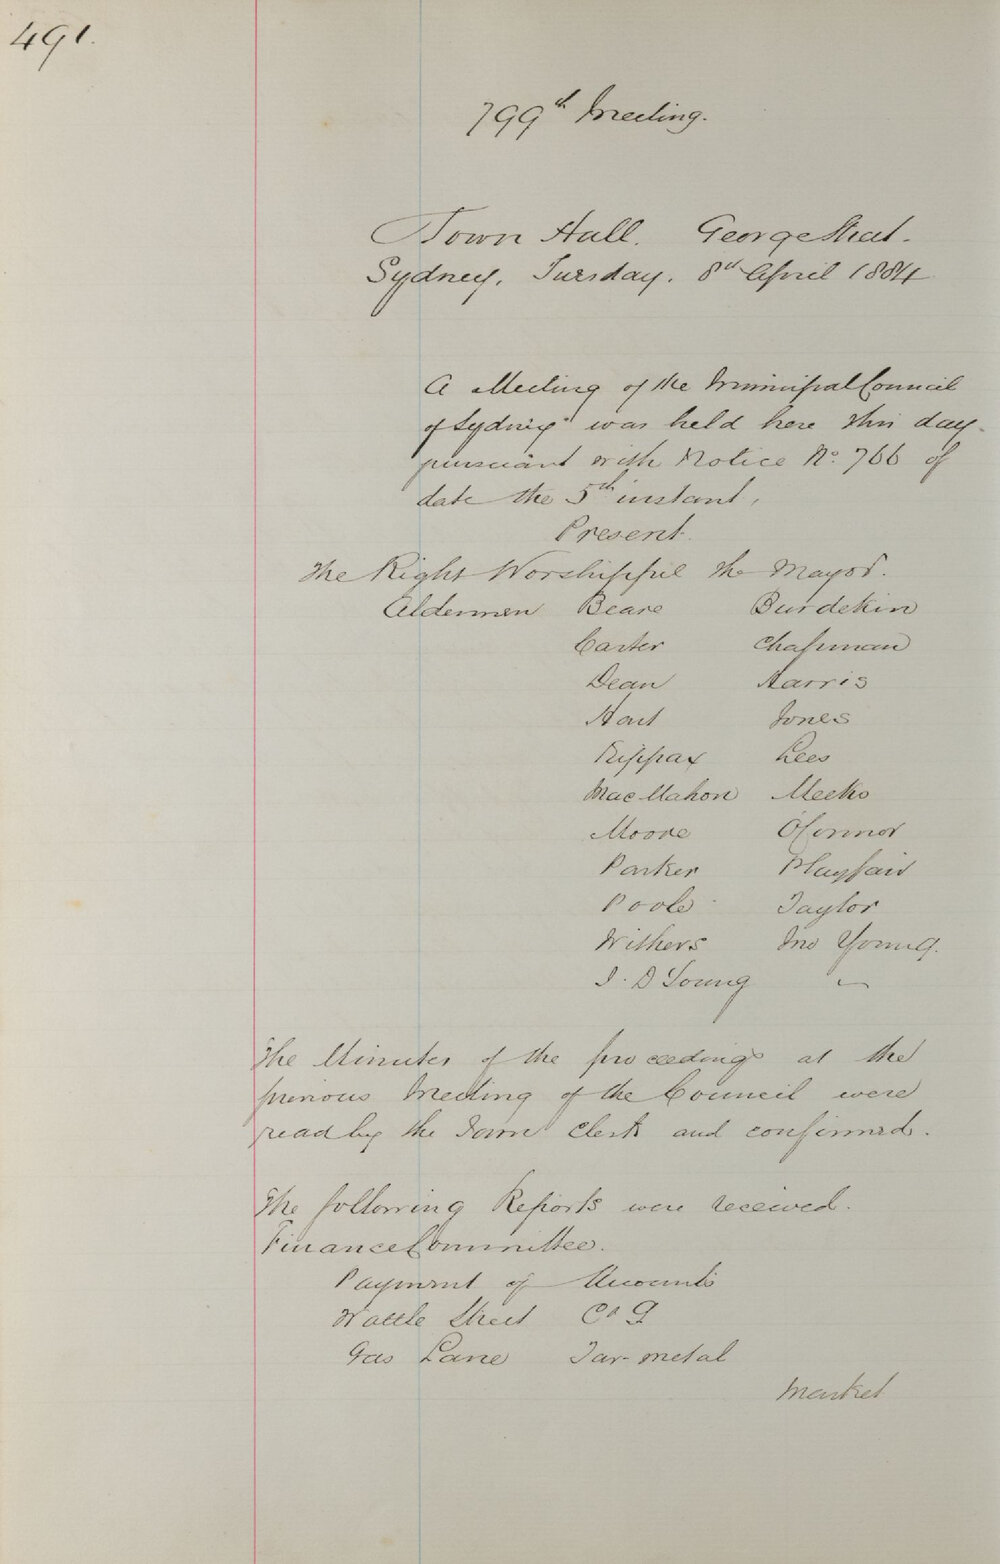 491.
799th Meeting.
Town Hall. George Street.
Sydney, Tuesday, 8th April 1884
A Meeting of the Municipal Council
of Sydney was held here this day
pursuant with Notice No. 766 of
date the 5th instant.
Present.
The Right Worshipful the Mayor.
Aldermen Beare Burdekin
Carter Chapman
Dean Harris
Hart Jones
Kippax Lees
MacMahon Meeks
Moore O'Connor
Parker Playfair
Poole Taylor
Withers Jno Young.
J. D Young "
The Minutes of the proceedings at the
previous Meeting of the Council were
read by the Town Clerk and confirmed.
The following Reports were received.
Finance Committee.
Payment of Accounts
Wattle Street
Gas Lane Tar-metal
Market